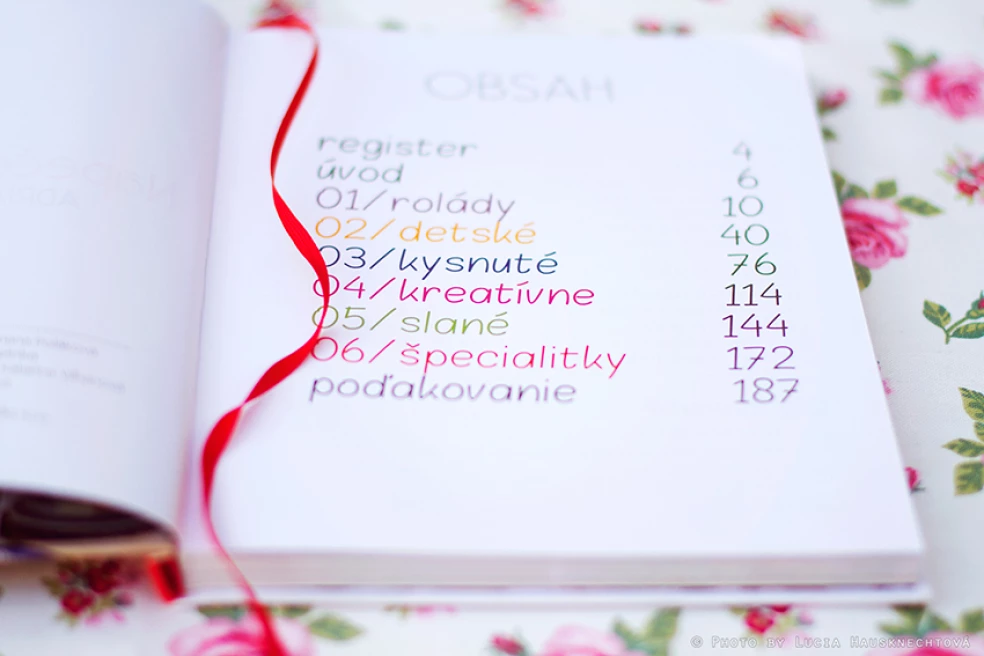 OBSAH
register 4
úvod 6
01/rolády 10
02/detské 40
03/kysnuté 76
04/kreatívne 114
05/slané 144
06/špecialitky 172
poďakovanie 187
© Photo by Lucia Hausknechtová